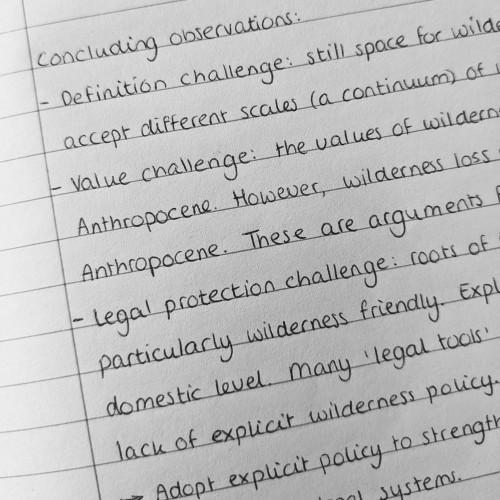 Concluding observations:
- Definition challenge: still space for
accept different scales (a continuum) of
- Value challenge: the values of
Anthropocene. However, wilderness loss
Anthropocene. These are arguments
- Legal protection challenge: roots of
particularly wilderness friendly.
domestic level. Many 'legal tools'
lack of explicit wilderness policy.
→ Adopt explicit policy to
systems.